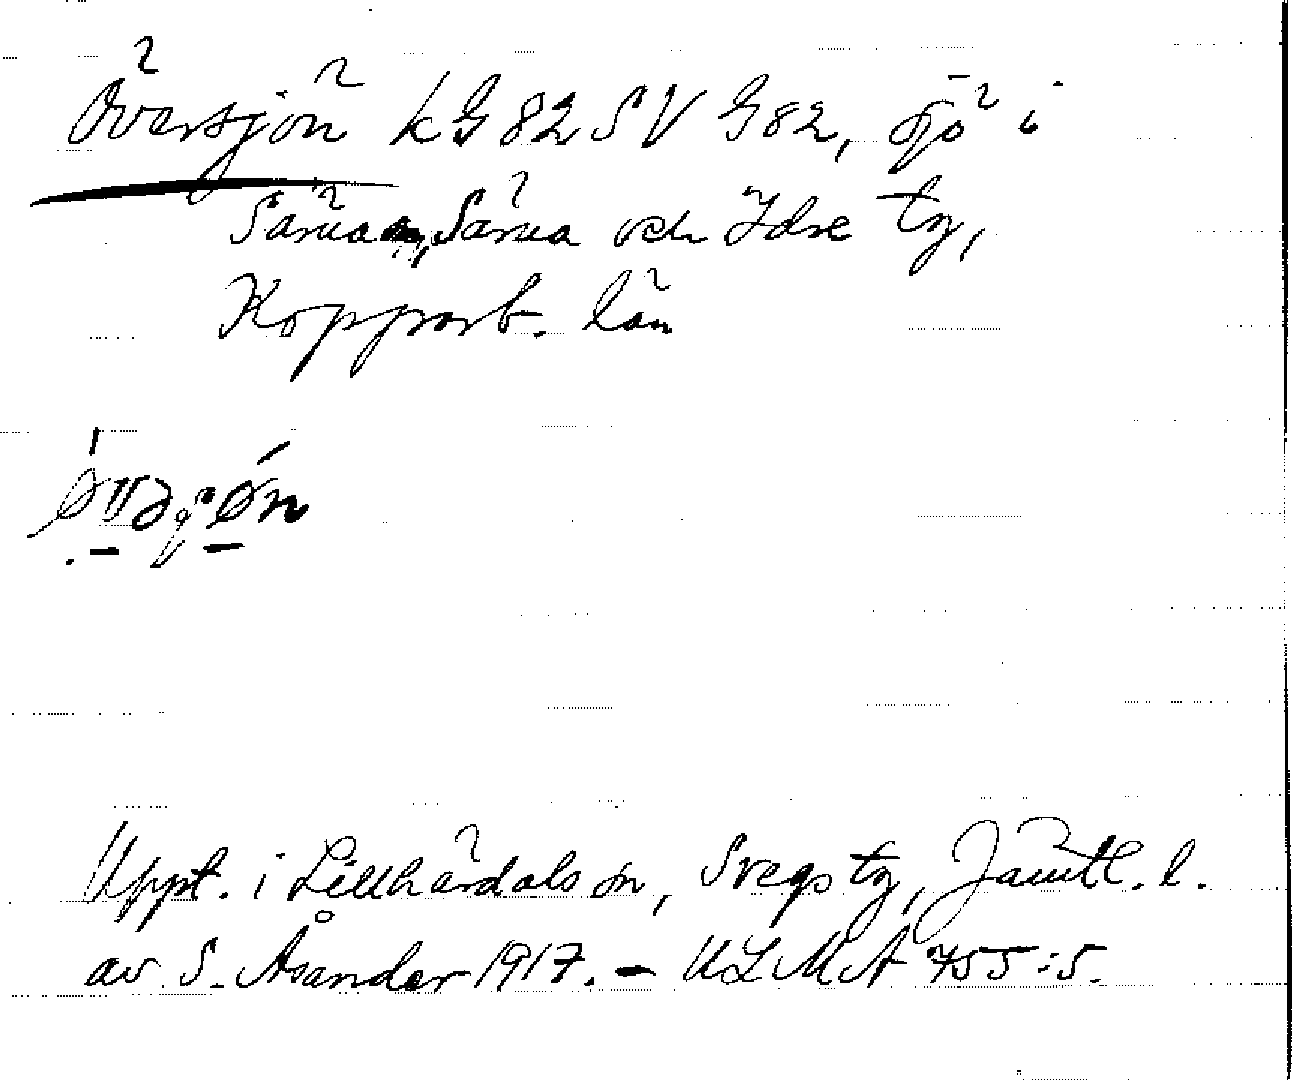 Översjön kG82SV G82, sjö i
Särna, Särna och Idre tg,
Kopparb. län
Uppt. i Lillhärdals sn, Svegs tg, Jämtl. l.
av S. Åsander 1917. – ULMA 755:5.